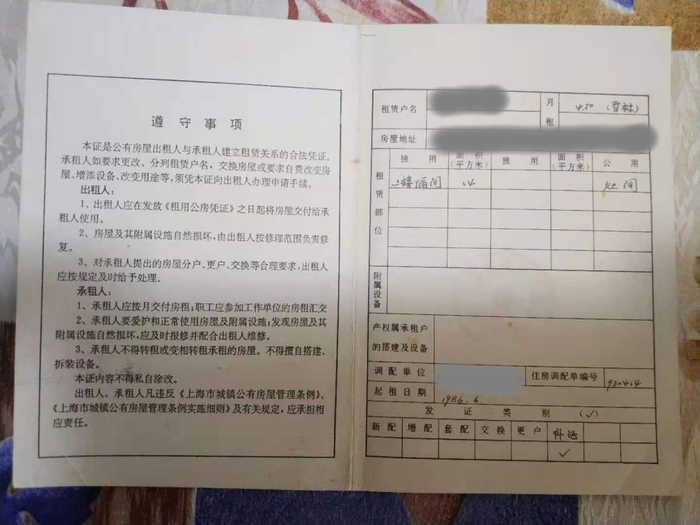 遵守事项
本证是公有房屋出租人与承租人建立租赁关系的合法凭证。
承租人如要求更改、分列租赁户名，交换房屋或要求自费改变房
屋、增添设备、改变用途等，须凭本证向出租人办理申请手续。
出租人：
1、出租人应在发放《租用公房凭证》之日起将房屋交付给承
租人使用。
2、房屋及其附属设施自然损坏，由出租人按修理范围负责修
复。
3、对承租人提出的房屋分户、更户、交换等合理要求，出租人
应按规定及时给予处理。
承租人：
1、承租人应按月交付房租；职工应参加工作单位的房租汇交
2、承租人要爱护和正常使用房屋及附属设施；发现房屋及其
附属设施自然损坏，应及时报修并配合出租人维修。
3、承租人不得转租或变相转租承租的房屋。不得擅自搭建、
拆装设备。
本证内容不得私自涂改。
出租人、承租人凡违反《上海市城镇公有房屋管理条例》、
《上海市城镇公有房屋管理条例实施细则》及有关规定，应承担相
应责任。
租赁户名 月租 4.50
房屋地址
租赁部位 独用 面积(平方米) 独用 面积(平方米) 公用
14 灶间
附属设备
产权属承租户的搭建及设备
调配单位 住房调配单编号
起租日期 1986.6.
发证类别(√)
新配 增配 套配 交换 更户
✓